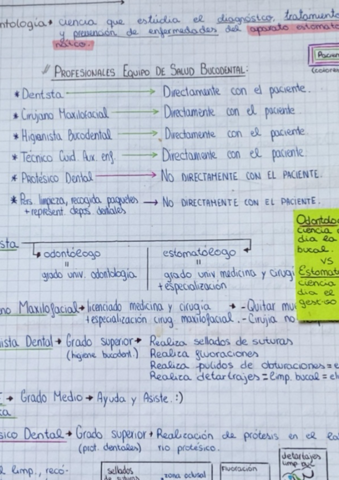 ntología → ciencia que estudia el diagnóstico, tratamiento
y prevención de enfermedades del aparato estomato
nático.
// PROFESIONALES EQUIPO DE SALUD BUCODENTAL:
* Dentista → Directamente con el paciente.
* Cirujano Maxilofacial → Directamente con el paciente
* Higienista Bucodental → Directamente con el paciente.
* Técnico Cuid. Aux. enf. → Directamente con el paciente
* Protésico Dental → NO DIRECTAMENTE CON EL PACIENTE.
* Pers. limpieza, recogida paquetes → NO DIRECTAMENTE CON EL PACIENTE.
+ represent. depos. dentales
Odontolo
ciencia
dia la
bucal.
VS
Estomato
ciencia
dia el
sta
odontólogo
estomatólogo
=
=
grado univ. odontología
grado univ medicina y cirugí
+ especialización
no Maxilofacial → licenciado medicina y cirugía → - Quitar mu
+ especialización cirug. maxilofacial. - Cirujía no
ista Dental → Grado superior → Realiza sellados de suturas
(higiene bucodent.) Realiza fluoraciones
Realiza pulidos de obturaciones = e
Realiza detartrajes = limp. bucal = el
→ Grado Medio → Ayuda y Asiste. :)
ca
sico Dental → Grado superior → Realización de prótesis en el la
(prót. dentales) no protésico.
l limp., recó-
sellados
zona oclusal
fluoración
detartrajes